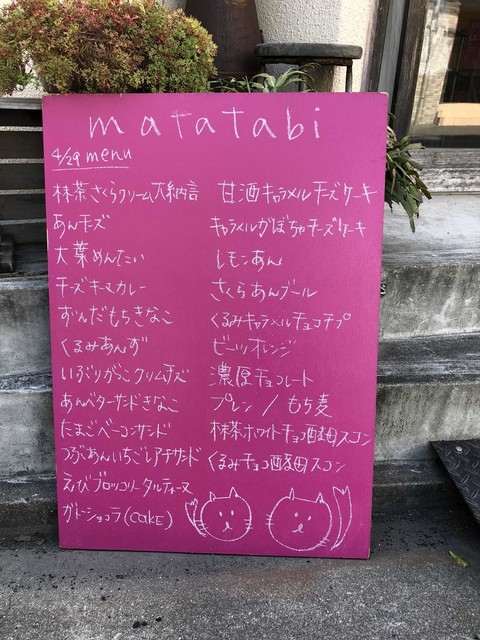 matatabi
4/29 menu
抹茶さくらクリーム大納言
あんチーズ
大葉めんたい
チーズキーマカレー
ずんだもちきなこ
くるみあんず
いぶりがっこクリームチーズ
あんバターサンドきなこ
たまごベーコンサンド
つぶあんいちごレアチサンド
えびブロッコリータルティーヌ
ガトーショコラ(CAKE)
甘酒キャラメルチーズケーキ
キャラメルかぼちゃチーズケーキ
レモンあん
さくらあんブール
くるみキャラメルチョコチプ
ビーツオレンジ
濃厚チョコレート
プレーン / もち麦
抹茶ホワイトチョコ酒麹スコン
くるみチョコ酒麹スコン